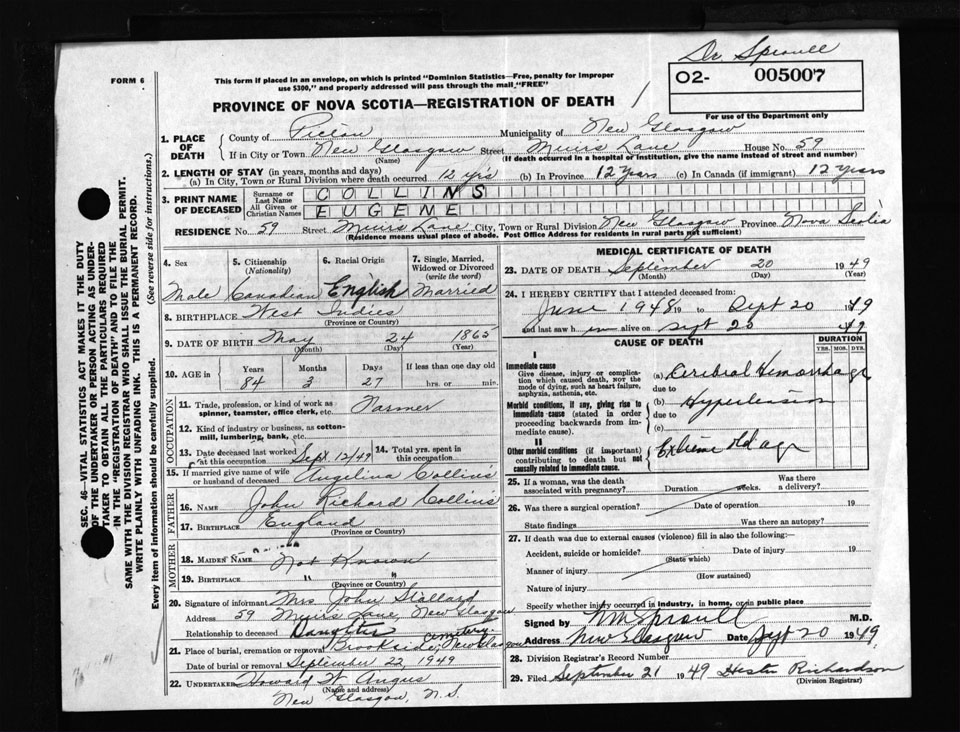 Dr Sproull
FORM 6
This form if placed in an envelope, on which is printed "Dominion Statistics—Free, penalty for improper
use $300," and properly addressed will pass through the mail, "FREE"
O2- 005007
For use of the Department only
PROVINCE OF NOVA SCOTIA—REGISTRATION OF DEATH
1. PLACE OF DEATH
County of Pictou Municipality of New Glasgow
If in City or Town New Glasgow Street Muirs Lane House No. 59
(Name) (If death occurred in a hospital or institution, give the name instead of street and number)
2. LENGTH OF STAY (in years, months and days)
(a) In City, Town or Rural Division where death occurred 12 yrs (b) In Province 12 Years (c) In Canada (if immigrant) 12 Years
3. PRINT NAME OF DECEASED
Surname or Last Name COLLINS
All Given or Christian Names EUGENE
RESIDENCE No. 59 Street Muirs Lane City, Town or Rural Division New Glasgow Province Nova Scotia
(Residence means usual place of abode. Post Office Address for residents in rural parts not sufficient)
4. Sex 5. Citizenship (Nationality) 6. Racial Origin 7. Single, Married, Widowed or Divorced (write the word)
Male Canadian English Married
8. BIRTHPLACE West Indies
(Province or Country)
9. DATE OF BIRTH May 24 1865
(Month) (Day) (Year)
10. AGE in Years Months Days If less than one day old
84 3 27 hrs. or min.
OCCUPATION
11. Trade, profession, or kind of work as spinner, teamster, office clerk, etc. Farmer
12. Kind of industry or business, as cotton-mill, lumbering, bank, etc.
13. Date deceased last worked at this occupation Sept 12/49 14. Total yrs. spent in this occupation
15. If married give name of wife or husband of deceased Angelina Collins
FATHER
16. NAME John Richard Collins
17. BIRTHPLACE England
(Province or Country)
MOTHER
18. MAIDEN NAME Not Known
19. BIRTHPLACE " "
(Province or Country)
20. Signature of informant Mrs John Stallard
Address 59 Muirs Lane, New Glasgow
Relationship to deceased Daughter
21. Place of burial, cremation or removal Brookside cemetery, New Glasgow
Date of burial or removal September 22, 1949
22. UNDERTAKER Howard W. Angus
(Name and address)
New Glasgow, N.S.
MEDICAL CERTIFICATE OF DEATH
23. DATE OF DEATH September 20 1949
(Month) (Day) (Year)
24. I HEREBY CERTIFY that I attended deceased from:
June 1948 19 to Sept 20 1949
and last saw him alive on Sept 20 49
CAUSE OF DEATH
DURATION
YRS. MOS. DYS.
I
Immediate cause
Give disease, injury or complication which caused death, NOT the mode of dying, such as heart failure, asphyxia, asthenia, etc.
(a) Cerebral Hemorrhage
due to
Morbid conditions, if any, giving rise to immediate cause (stated in order proceeding backwards from immediate cause).
(b) Hypertension
due to
(c)
II
Other morbid conditions (if important) contributing to death but not causally related to immediate cause.
Extreme old age
25. If a woman, was the death associated with pregnancy? Duration weeks. Was there a delivery?
26. Was there a surgical operation? Date of operation 19
State findings Was there an autopsy?
27. If death was due to external causes (violence) fill in also the following:
Accident, suicide or homicide? Date of injury 19
(State which)
Manner of injury
(How sustained)
Nature of injury
Specify whether injury occurred in industry, in home, or in public place
Signed by M M Sproull M.D.
Address New Glasgow Date Sept 20 1949
28. Division Registrar's Record Number
29. Filed September 21 1949 Hester Richardson
(Division Registrar)
SEC. 46—VITAL STATISTICS ACT MAKES IT THE DUTY
OF THE UNDERTAKER OR PERSON ACTING AS UNDER-
TAKER TO OBTAIN ALL THE PARTICULARS REQUIRED
IN THE "REGISTRATION OF DEATH" AND TO FILE THE
SAME WITH THE DIVISION REGISTRAR WHO SHALL ISSUE THE BURIAL PERMIT.
WRITE PLAINLY WITH UNFADING INK. THIS IS A PERMANENT RECORD.
Every item of information should be carefully supplied. (See reverse side for instructions.)